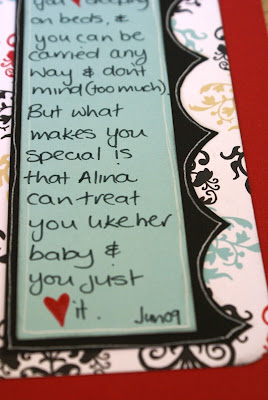 you ♥ sleeping
on beds, &
you can be
carried any
way & dont
mind (too much).
But what
makes you
special is
that Alina
can treat
you like her
baby &
you just
♥ it. Jun09